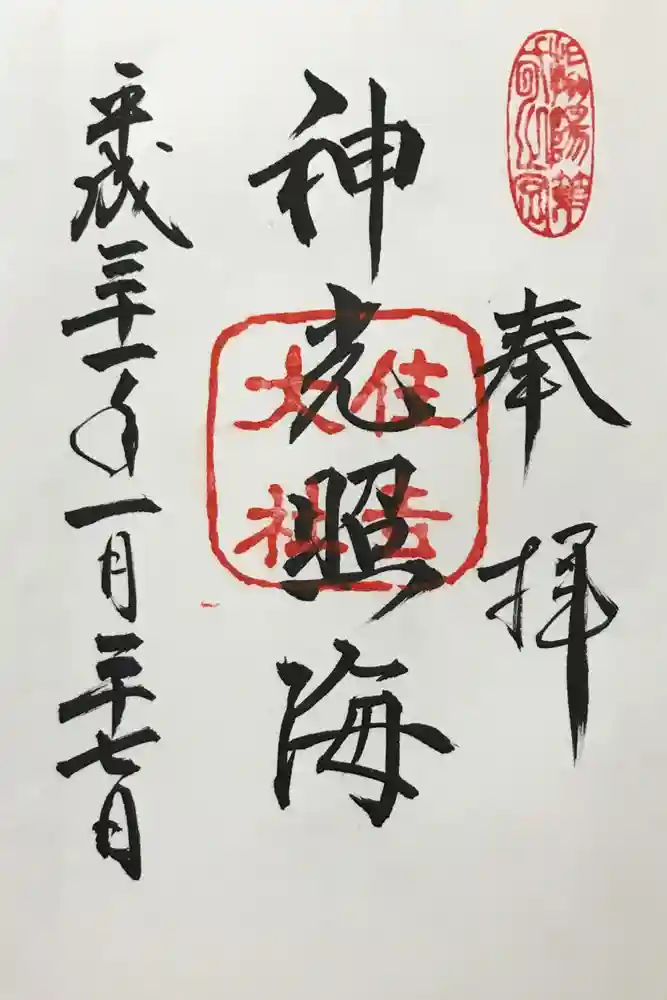 奉拝
神光照海
住吉
大社
平成三十一年一月二十七日